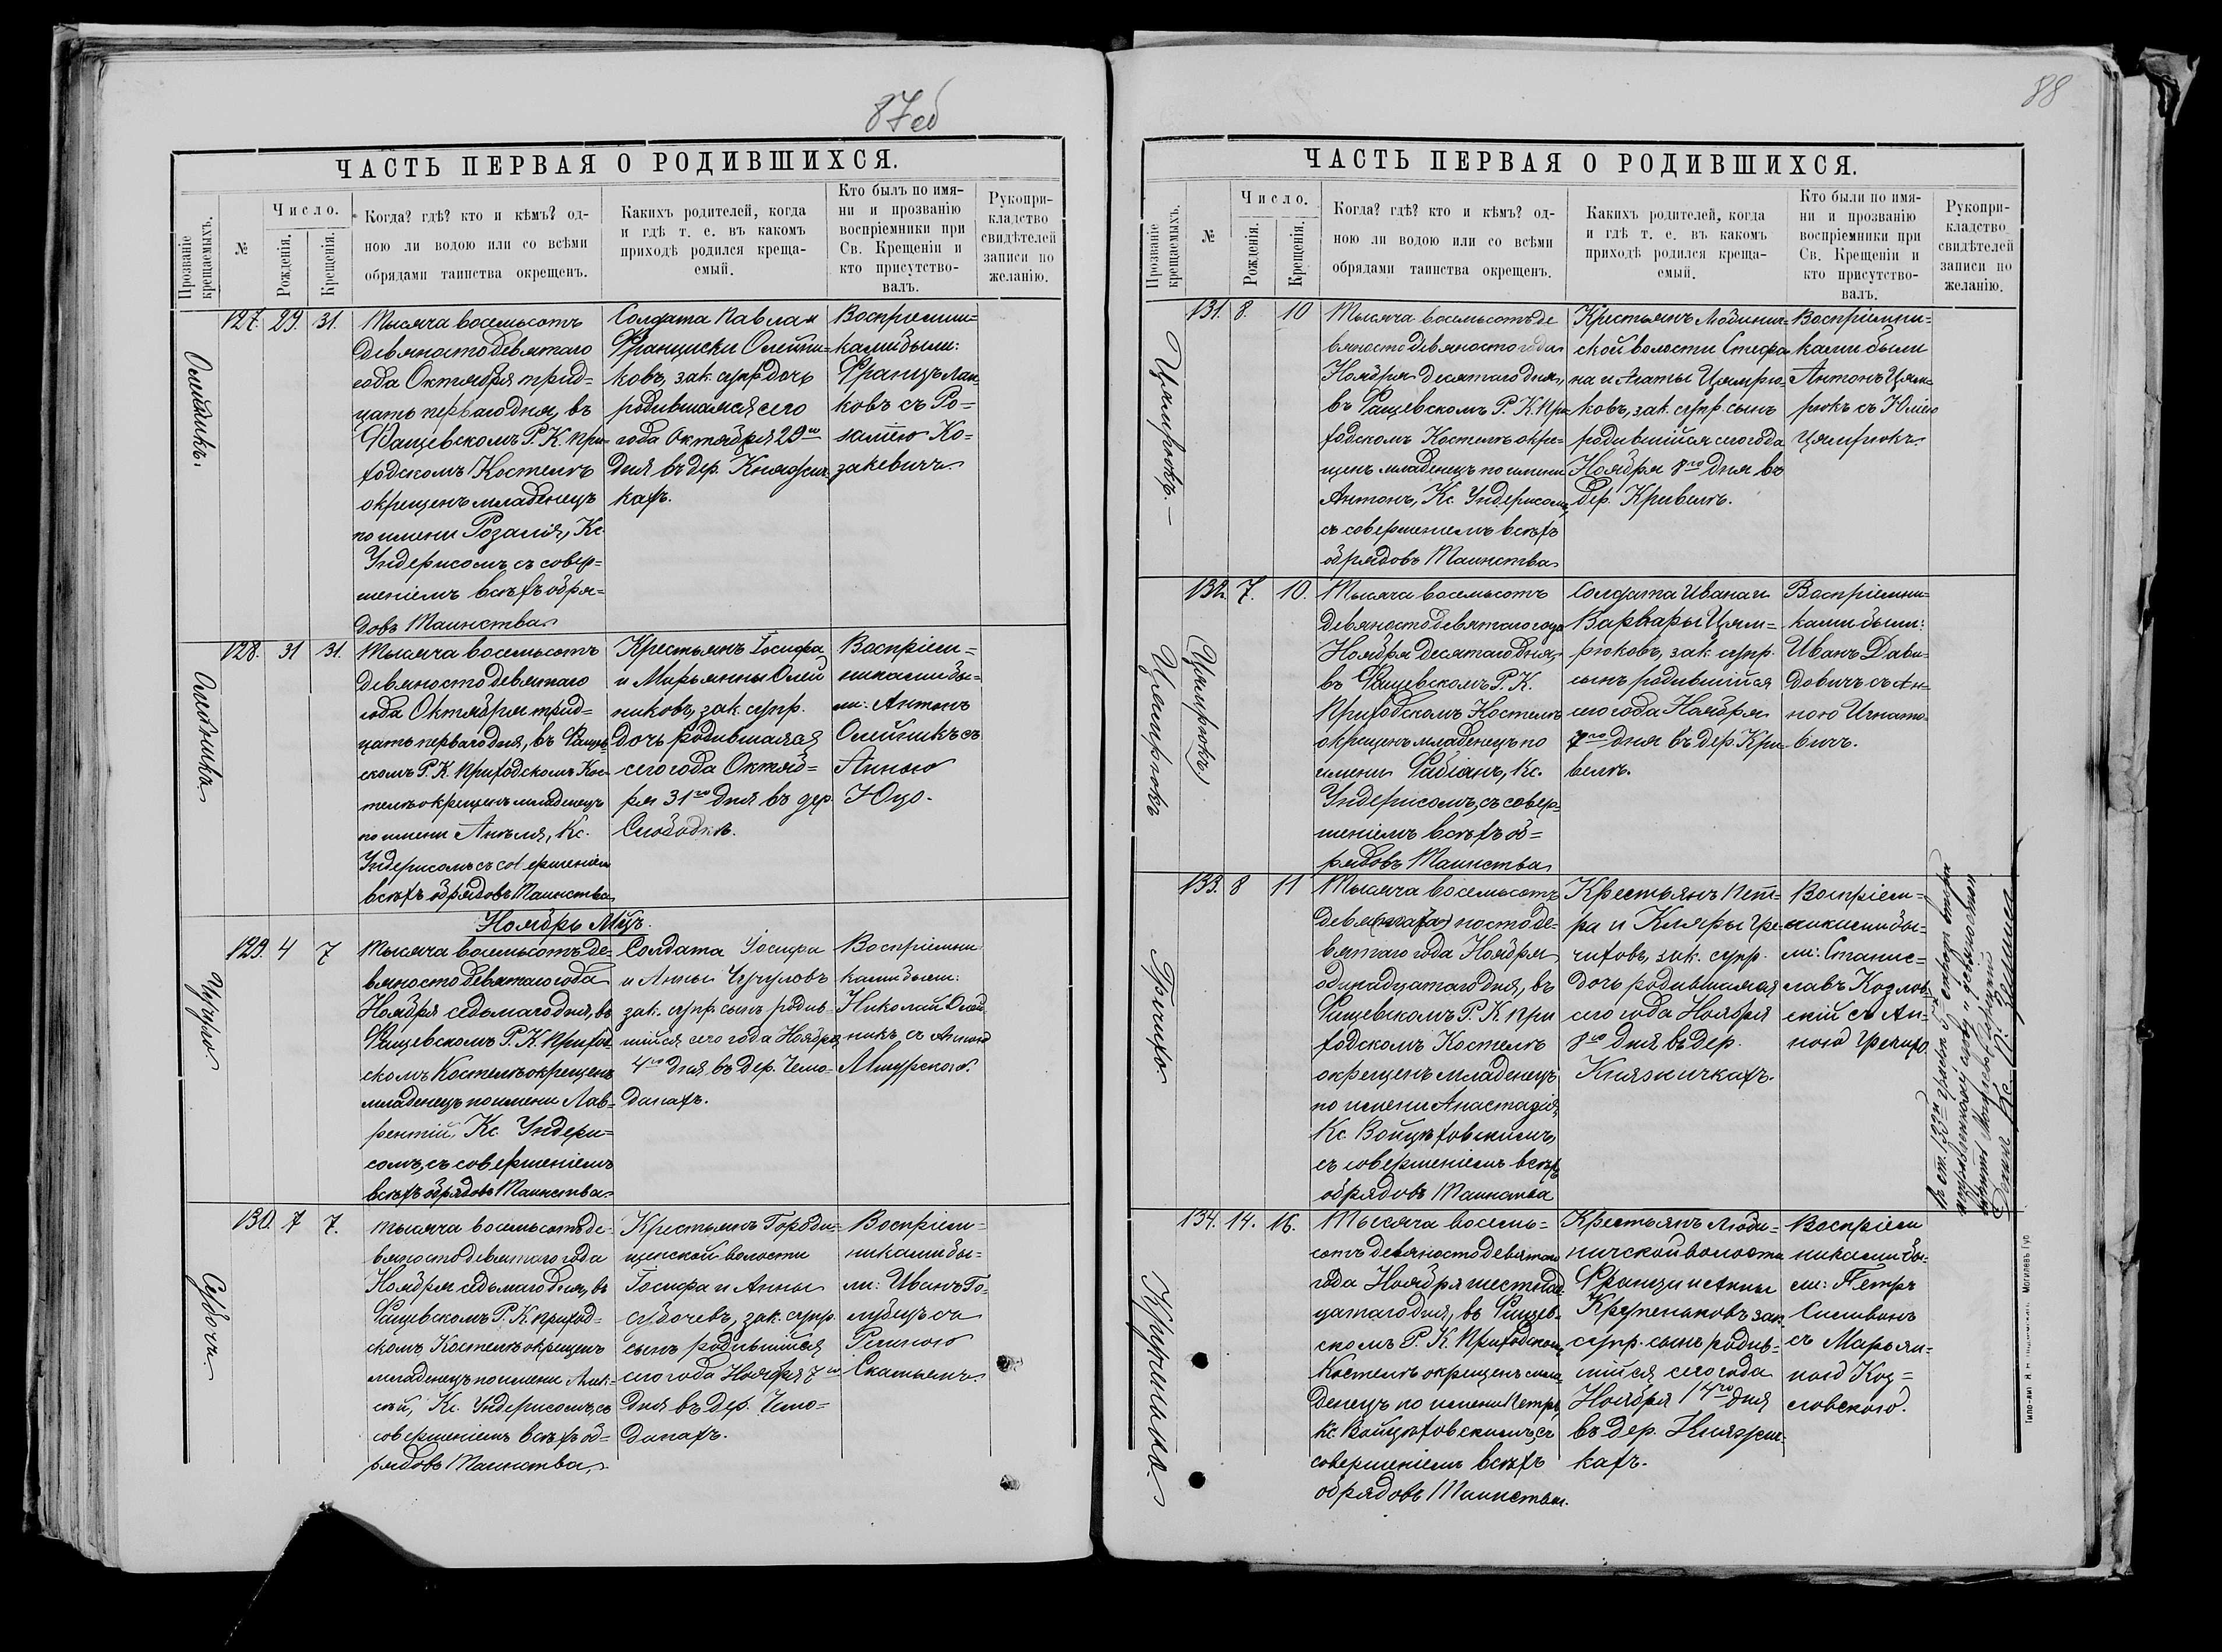 87об
ЧАСТЬ ПЕРВАЯ О РОДИВШИХСЯ.
Прозваніе крещаемыхъ.
№
Число.
Рожденія.
Крещенія.
Когда? гдѣ? кто и кѣмъ? од-
ною ли водою или со всѣми
обрядами таинства окрещенъ.
Какихъ родителей, когда
и гдѣ т. е. въ какомъ
приходѣ родился креща-
емый.
Кто былъ по имя-
ни и прозванію
воспріемники при
Св. Крещеніи и
кто присутство-
валъ.
Рукопри-
кладство
свидѣтелей
записи по
желанію.
Олейникъ.
127. 29. 31.
Тысяча восемьсотъ
девяносто девятаго
года Октября трид=
цать перваго дня, въ
Фащевскомъ Р. К. При-
ходскомъ Костелѣ
окрещенъ младенецъ
по имени Розалія, Кс.
Ундерисомъ съ совер=
шеніемъ всѣхъ обря=
довъ Таинства
Солдата Павла и
Франциски Олейни=
ковъ, зак. супр. дочь
родившаяся сего
года Октября 29го
дня въ дер. Княжич-
кахъ.
Воспріемни=
ками были:
Францъ Лан-
ковъ съ Ро=
заліею Ко=
закевичъ
Олейникъ.
128. 31 31.
Тысяча восемьсотъ
девяносто девятаго
года Октября трид=
цать перваго дня, въ Фащев-
скомъ Р. К. Приходскомъ Кос-
телѣ окрещенъ младенецъ
по имени Анеля, Кс.
Ундерисомъ съ совершеніемъ
всѣхъ обрядовъ Таинства
Крестьянъ Іосифа
и Марьянны Олей
никовъ, зак. супр.
дочь родившаяся
сего года Октяб=
ря 31го дня въ дер.
Слободкѣ.
Воспріем=
никами бы=
ли: Антонъ
Олейникъ съ
Анною
Юцо.
Ноябрь Мцъ.
129. 4 7
Тысяча восемьсотъ де=
вяносто девятаго года
Ноября седьмаго дня, въ
Фащевскомъ Р. К. Приход-
скомъ Костелѣ окрещенъ
младенецъ по имени Лав=
рентій, Кс. Ундери=
сомъ, съ совершеніемъ
всѣхъ обрядовъ Таинства
Солдата Іосифа
и Анны
зак. супр. сынъ родив=
шійся сего года Ноября
4го дня, въ дер. Чемо=
данахъ.
Воспріемни-
ками были:
Николай Олей
никъ съ Анною
Мазурскою.
Субочъ.
130. 7 7.
Тысяча восемьсотъ де-
вяносто девятаго года
Ноября седьмаго дня, въ
Фащевскомъ Р. К. Приход=
скомъ Костелѣ окрещенъ
младенецъ по имени Алек=
сѣй, Кс. Ундерисомъ, съ
совершеніемъ всѣхъ об=
рядовъ Таинства
Крестьянъ Городи=
щенской волости
Іосифа и Анны
Субочевъ, зак. супр.
сынъ родившійся
сего года Ноября 7го
дня въ дер. Чемо=
данахъ.
Воспріем=
никами бы=
ли: Иванъ Го=
лубицъ съ
88
ЧАСТЬ ПЕРВАЯ О РОДИВШИХСЯ.
Прозваніе крещаемыхъ.
№
Число.
Рожденія.
Крещенія.
Когда? гдѣ? кто и кѣмъ? од-
ною ли водою или со всѣми
обрядами таинства окрещенъ.
Какихъ родителей, когда
и гдѣ т. е. въ какомъ
приходѣ родился креща-
емый.
Кто были по имя-
ни и прозванію
воспріемники при
Св. Крещеніи и
кто присутство-
валъ.
Рукопри-
кладство
свидѣтелей
записи по
желанію.
Цямрюкъ.
131. 8. 10
Тысяча восемьсотъ де
вяносто девяностого года
Ноября десятаго дня,
въ Фащевскомъ Р. К. При
ходскомъ Костелѣ окре=
щенъ младенецъ по имени
Антонъ, Кс. Ундерисомъ,
съ совершеніемъ всѣхъ
обрядовъ Таинства
Крестьянъ Людинич=
ской волости Стефа
на и Агаты Цямрю=
ковъ, зак. супр. сынъ
родившійся сего года
Ноября 8го дня въ
дер. Кривелѣ.
Воспріемни=
ками были
Антонъ Цям=
рюкъ съ Юліею
Цямрюкъ
Цямрюкъ
(Цямрюкъ)
132. 7. 10.
Тысяча восемьсотъ
девяносто девятаго года
Ноября десятаго дня,
въ Фащевскомъ Р. К.
Приходскомъ Костелѣ
окрещенъ младенецъ по
имени Фабіанъ, Кс.
Ундерисомъ, съ совер=
шеніемъ всѣхъ об=
рядовъ Таинства
Солдата Ивана и
Варвары Цям=
рюковъ, зак. супр.
сынъ родившійся
сего года Ноября
7го дня въ дер. Кри
велѣ.
Воспріемни=
ками были:
Иванъ Дави=
довичъ съ Ан=
ною Игнато=
вичъ.
133. 8 11
Тысяча восемьсотъ
одинадцатаго дня, въ
Фащевскомъ Р. К. При
ходскомъ Костелѣ
окрещенъ младенецъ
по имени Анастазія,
Кс. Войцѣховскимъ,
съ совершеніемъ всѣхъ
обрядовъ Таинства
Крестьянъ Пет=
ра и Кляры Гре=
чиховъ, зак. супр.
дочь родившаяся
сего года Ноября
8го дня въ дер.
Княжичкахъ.
Воспріем=
никами бы=
ли: Станис=
лавъ Козлов=
скій съ Ан=
ною
134. 14. 16.
Тысяча восемь=
сотъ девяносто девятаго
года Ноября шестнад
цатаго дня, въ Фащев=
скомъ Р. К. Приходскомъ
Костелѣ окрещенъ мла=
денецъ по имени Петръ,
Кс. Войцѣховскимъ, съ
совершеніемъ всѣхъ
обрядовъ Таинства.
Крестьянъ Люди=
ничской волости
Франца и Анны
зак.
супр. сынъ родив=
шійся сего года
Ноября 14го дня
въ дер. Княжич=
кахъ.
Воспріем
никами бы=
ли: Петръ
Силивонъ
съ Марьян=
ною Коз=
ловскою.